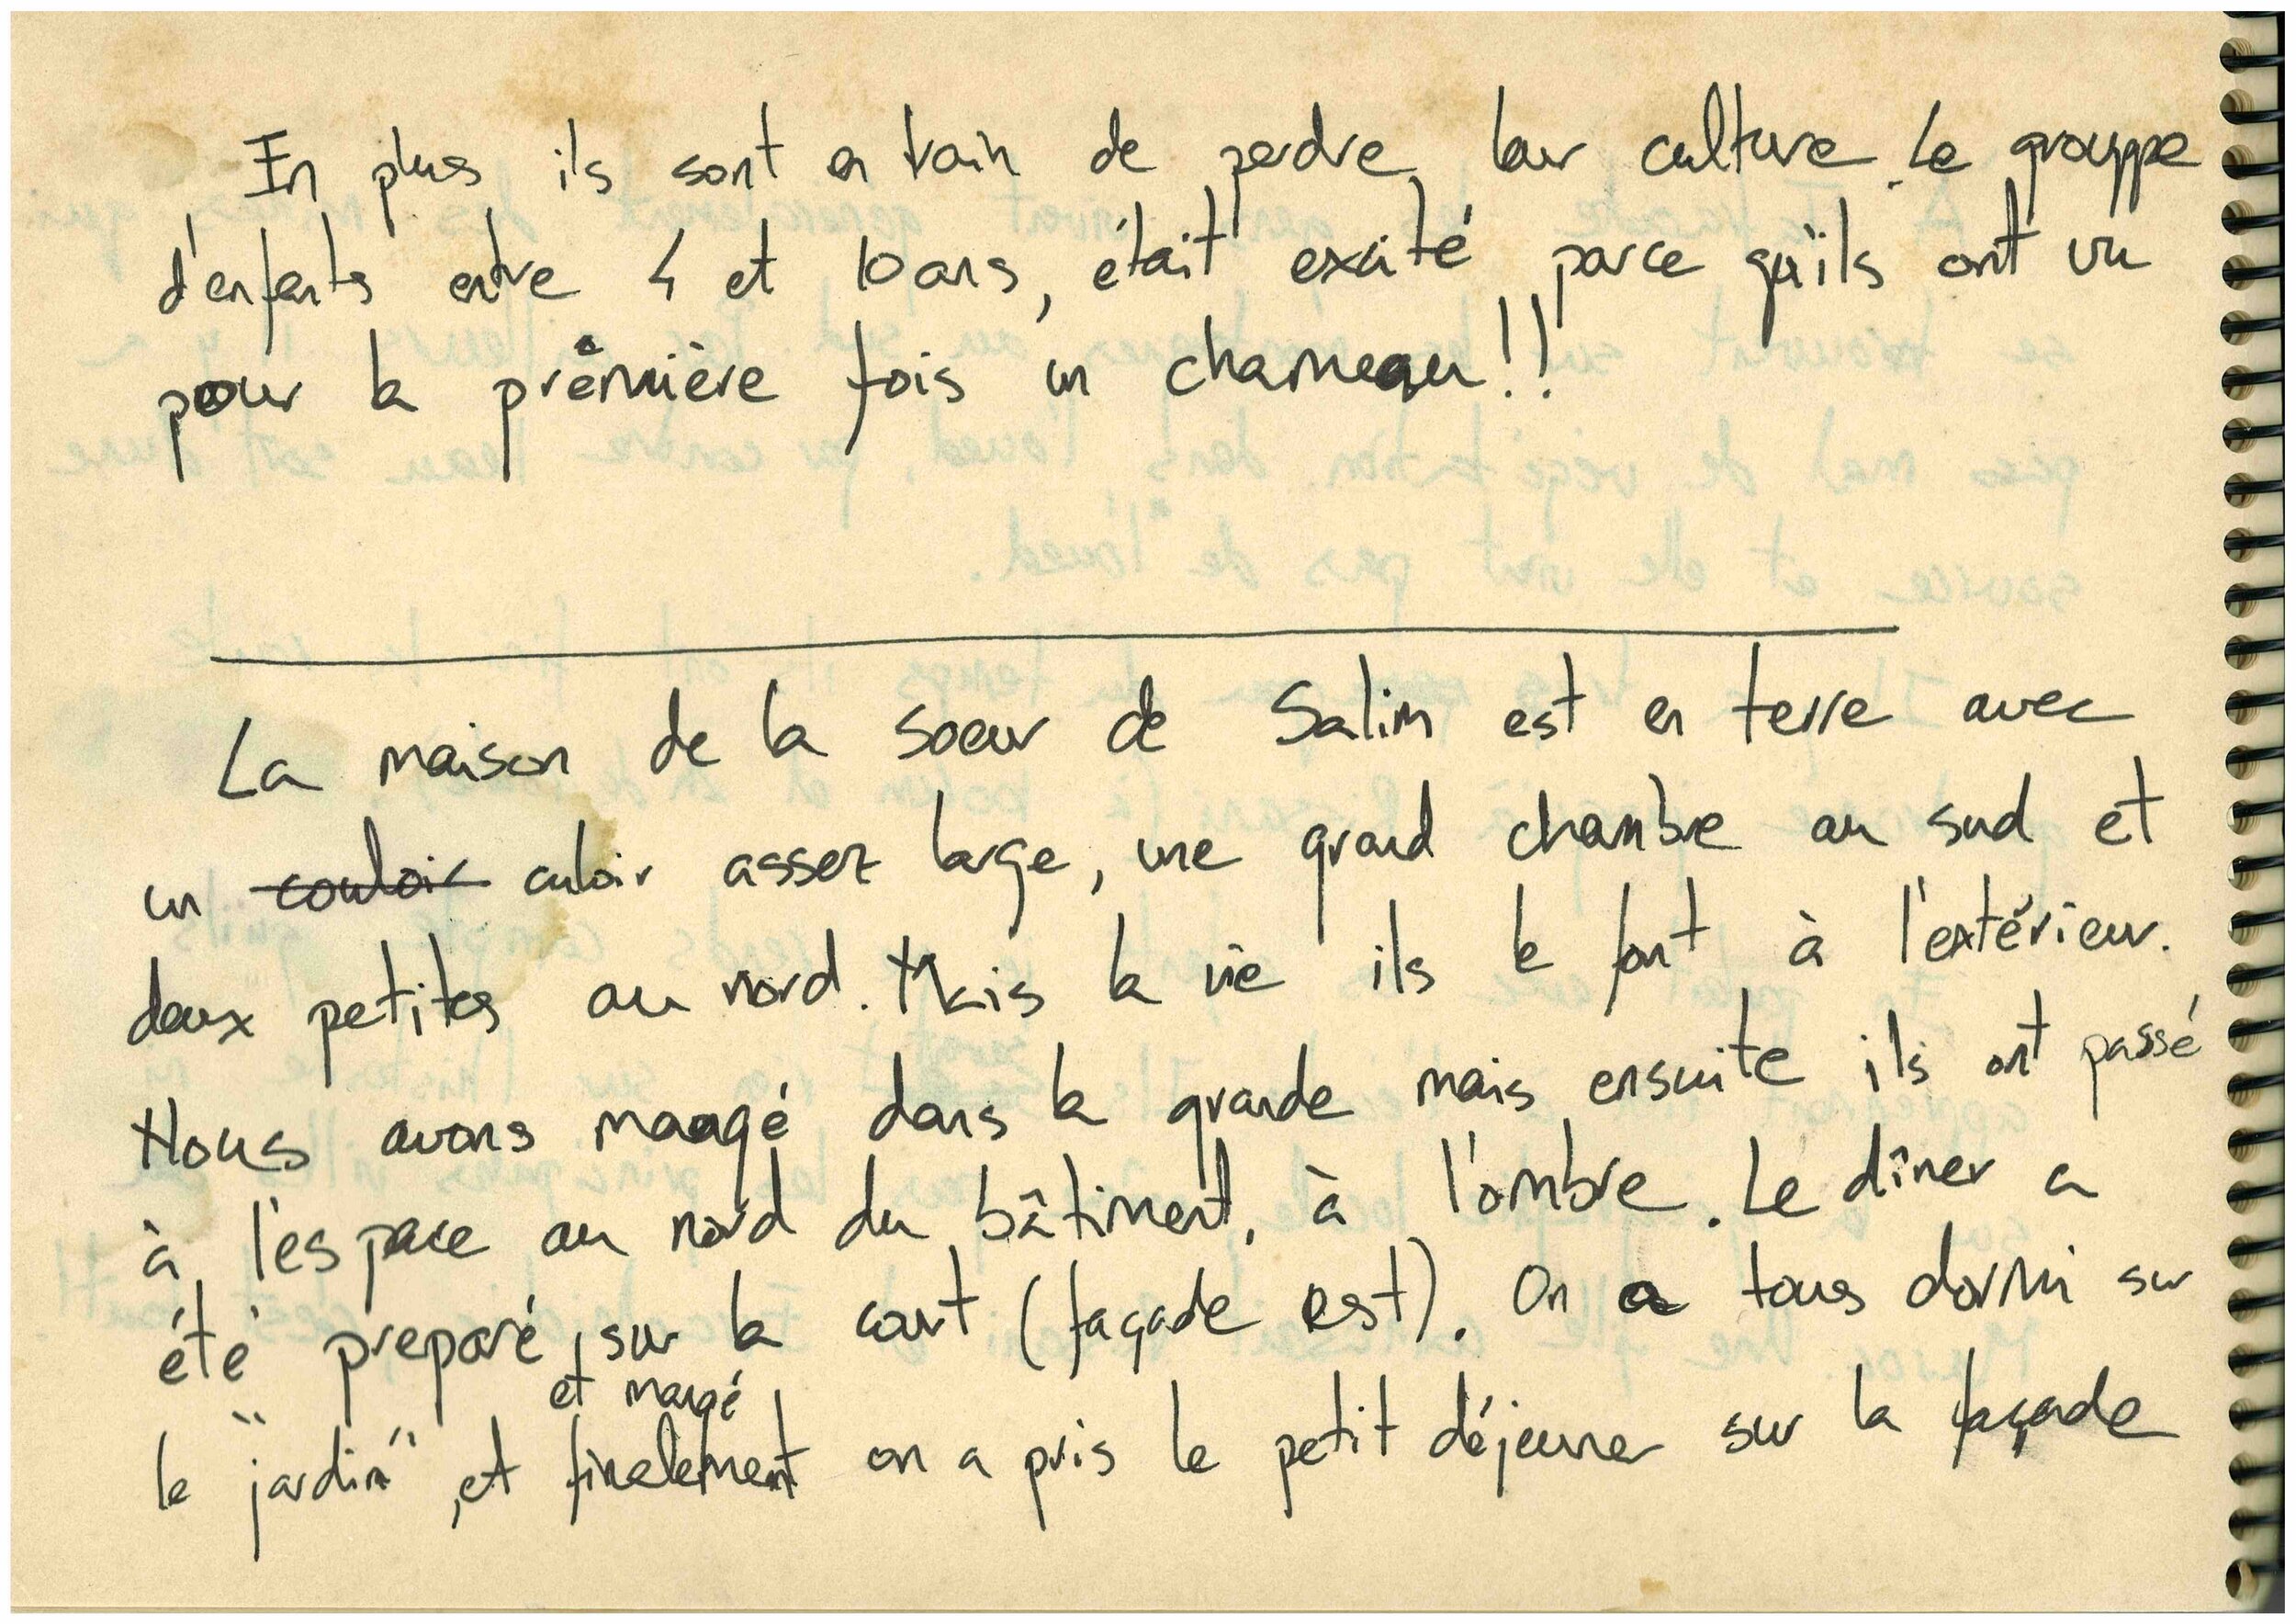 En plus ils sont en train de perdre leur culture. Le grouppe
d'enfants entre 4 et 10 ans, était excité parce qu'ils ont vu
pour la première fois un chameau!!
La maison de la soeur de Salim est en terre avec
un couloir culoir assez large, une grand chambre au sud et
deux petites au nord. Mais la vie ils le font à l'extérieur.
Nous avons mangé dans la grande mais ensuite ils ont passé
à l'espace au nord du bâtiment, à l'ombre. Le dîner a
été preparé sur la court (façade est). On a tous dormi sur
et mangé
le "jardin", et finalement on a pris le petit déjeuner sur la façade